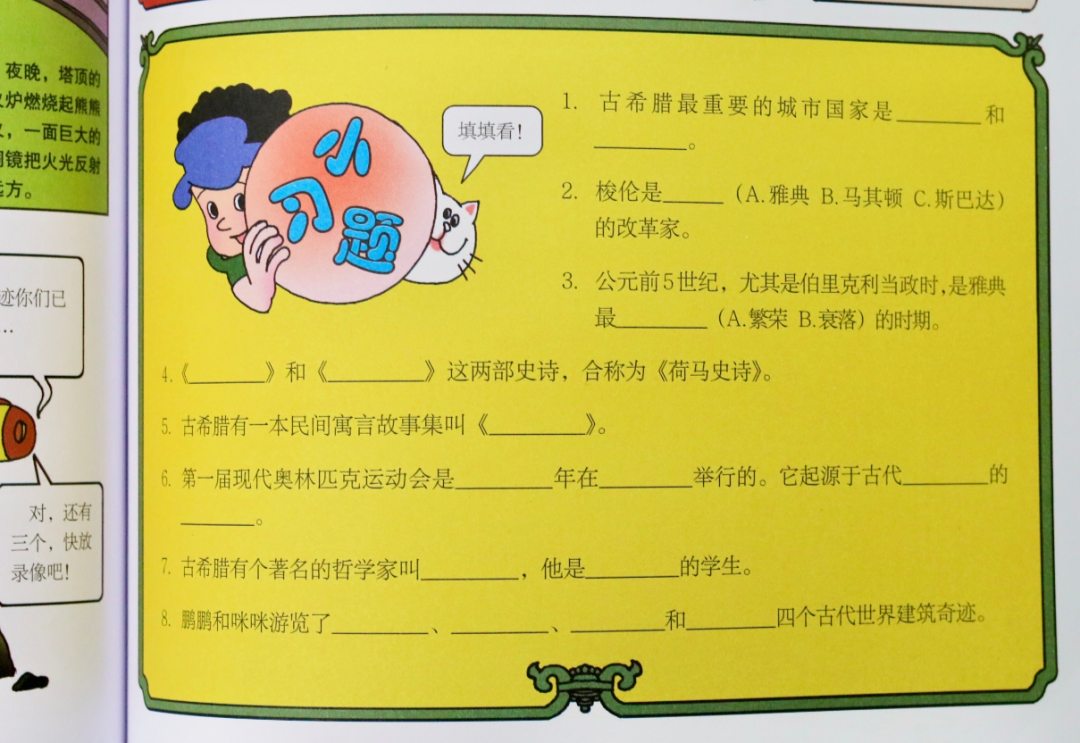 夜晚，塔顶的
火炉燃烧起熊熊
，一面巨大的
铜镜把火光反射
远方。
迹你们已
…
对，还有
三个，快放
录像吧！
小
习
题
填填看！
1. 古希腊最重要的城市国家是________和
________。
2. 梭伦是_____（A.雅典 B.马其顿 C.斯巴达）
的改革家。
3. 公元前5世纪，尤其是伯里克利当政时,是雅典
最________（A.繁荣 B.衰落）的时期。
4.《________》和《________》这两部史诗，合称为《荷马史诗》。
5. 古希腊有一本民间寓言故事集叫《________》。
6. 第一届现代奥林匹克运动会是________年在________举行的。它起源于古代________的
________。
7. 古希腊有个著名的哲学家叫________，他是________的学生。
8. 鹏鹏和咪咪游览了________、________、________和________四个古代世界建筑奇迹。